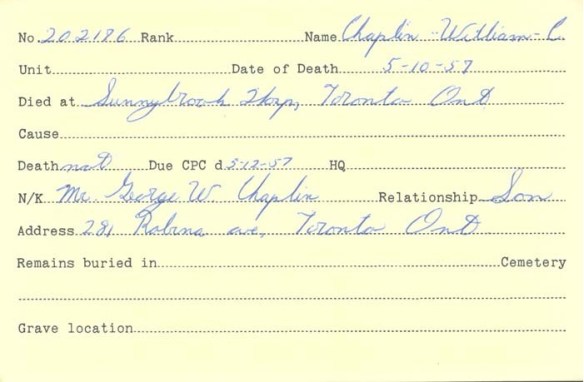 No. 202186 Rank Name Chaplin William C.
Unit Date of Death 5-10-57
Died at Sunnybrook Hosp, Toronto Ont
Cause
Death not Due CPC d 5-12-57 HQ
N/K Mr. George W. Chaplin Relationship Son
Address 281 Robina ave, Toronto Ont
Remains buried in Cemetery
Grave location